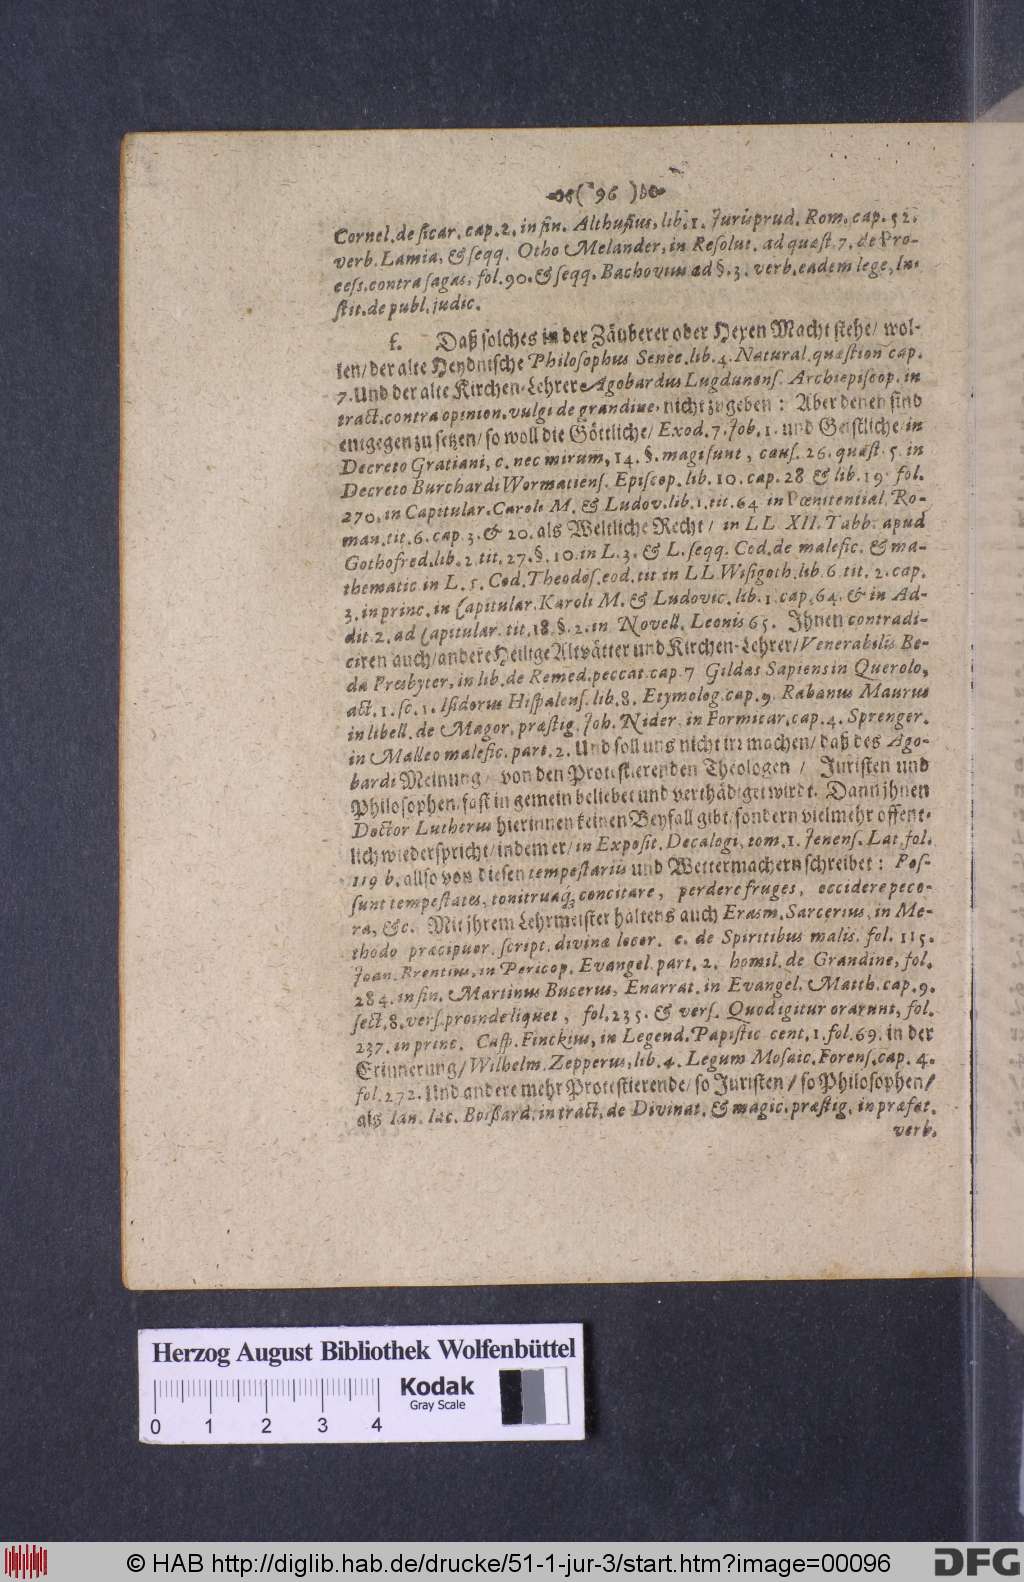 ( 96 )
Cornel. de sicar. cap. 2. in fin. Althusius, lib. 1. Jurisprud. Rom. cap. 52.
verb. Lamia, & seqq. Otho Melander, in Resolut. ad quæst. 7. de Pro-
cess. contra sagas, fol. 90. & seqq. Bachovius ad §. 3. verb. eadem lege, In-
stit. de publ. judic.
f. Daß solches in der Zäuberer oder Hexen Macht stehe/ wol-
len/ der alte Heydnische Philosophus Senec. lib. 4. Natural. quæstion cap.
7. Und der alte Kirchen-Lehrer Agobardus Lugdunens. Archiepiscop. in
tract. contra opinion. vulgi de grandine, nicht zugeben: Aber denen sind
entgegen zu setzen/ so woll die Göttliche/ Exod. 7. Job. 1. und Geistliche/ in
Decreto Gratiani, c. nec mirum, 14. §. magi sunt, caus. 26. quæst. 5. in
Decreto Burchardi Wormatiens. Episcop. lib. 10. cap. 28 & lib. 19. fol.
270. in Capitular. Caroli M. & Ludov. lib. 1. tit. 64 in Pœnitential. Ro-
man. tit. 6. cap. 3. & 20. als Weltliche Recht/ in LL XII. Tabb. apud
Gothofred. lib. 2. tit. 27. §. 10. in L. 3. & L. seqq. Cod. de malefic. & ma-
thematic. in L. 5. Cod. Theodos. eod. tit in LL Wisigoth. lib. 6. tit. 2. cap.
3. in princ. in Capitular. Karoli M. & Ludovic. lib. 1. cap. 64. & in Ad-
dit. 2. ad Capitular. tit. 18. §. 2. in Novell. Leonis 65. Ihnen contradi-
ciren auch/ andere Heilige Altvätter und Kirchen-Lehrer/ Venerabilis Be-
da Presbyter, in lib. de Remed. peccat. cap. 7 Gildas Sapiens in Querolo,
act. 1. sc. 1. Isidorus Hispalens. lib. 8. Etymolog. cap. 9. Rabanus Maurus
in libell. de Magor. præstig. Joh. Nider. in Formicar. cap. 4. Sprenger.
in Malleo malefic. part. 2. Und soll uns nicht irr machen/ daß des Ago-
bardi Meinung/ von den Protestierenden Theologen/ Juristen und
Philosophen/ fast in gemein beliebet und verthädiget wirdt. Dann ihnen
Doctor Lutherus hierinnen keinen Beyfall gibt/ sondern vielmehr öffent-
lich wiederspricht/ indem er/ in Exposit. Decalogi, tom. 1. Jenens. Lat. fol.
119 b. allso von diesen tempestariis und Wettermachern schreibet: Pos-
sunt tempestates, tonitruaq; concitare, perdere fruges, occidere peco-
ra, &c. Mit ihrem Lehrmeister haltens auch Erasm. Sarcerius, in Me-
thodo præcipuor. script. divinæ locor. c. de Spiritibus malis. fol. 115.
Joan. Brentius, in Pericop. Evangel. part. 2. homil. de Grandine, fol.
284. in fin. Martinus Bucerus, Enarrat. in Evangel. Matth. cap. 9.
sect. 8. vers. proinde liquet, fol. 235. & vers. Quod igitur orarunt, fol.
237. in princ. Casp. Finckius, in Legend. Papistic cent. 1. fol. 69. in der
Erinnerung/ Wilhelm. Zepperus, lib. 4. Legum Mosaic. Forens. cap. 4.
fol. 272. Und andere mehr Protestierende/ so Juristen/ so Philosophen/
als Ian. Iac. Boißard. in tract. de Divinat. & magic. præstig. in præfat.
verb.
Herzog August Bibliothek Wolfenbüttel
Kodak
Gray Scale
0 1 2 3 4
© HAB http://diglib.hab.de/drucke/51-1-jur-3/start.htm?image=00096
DFG